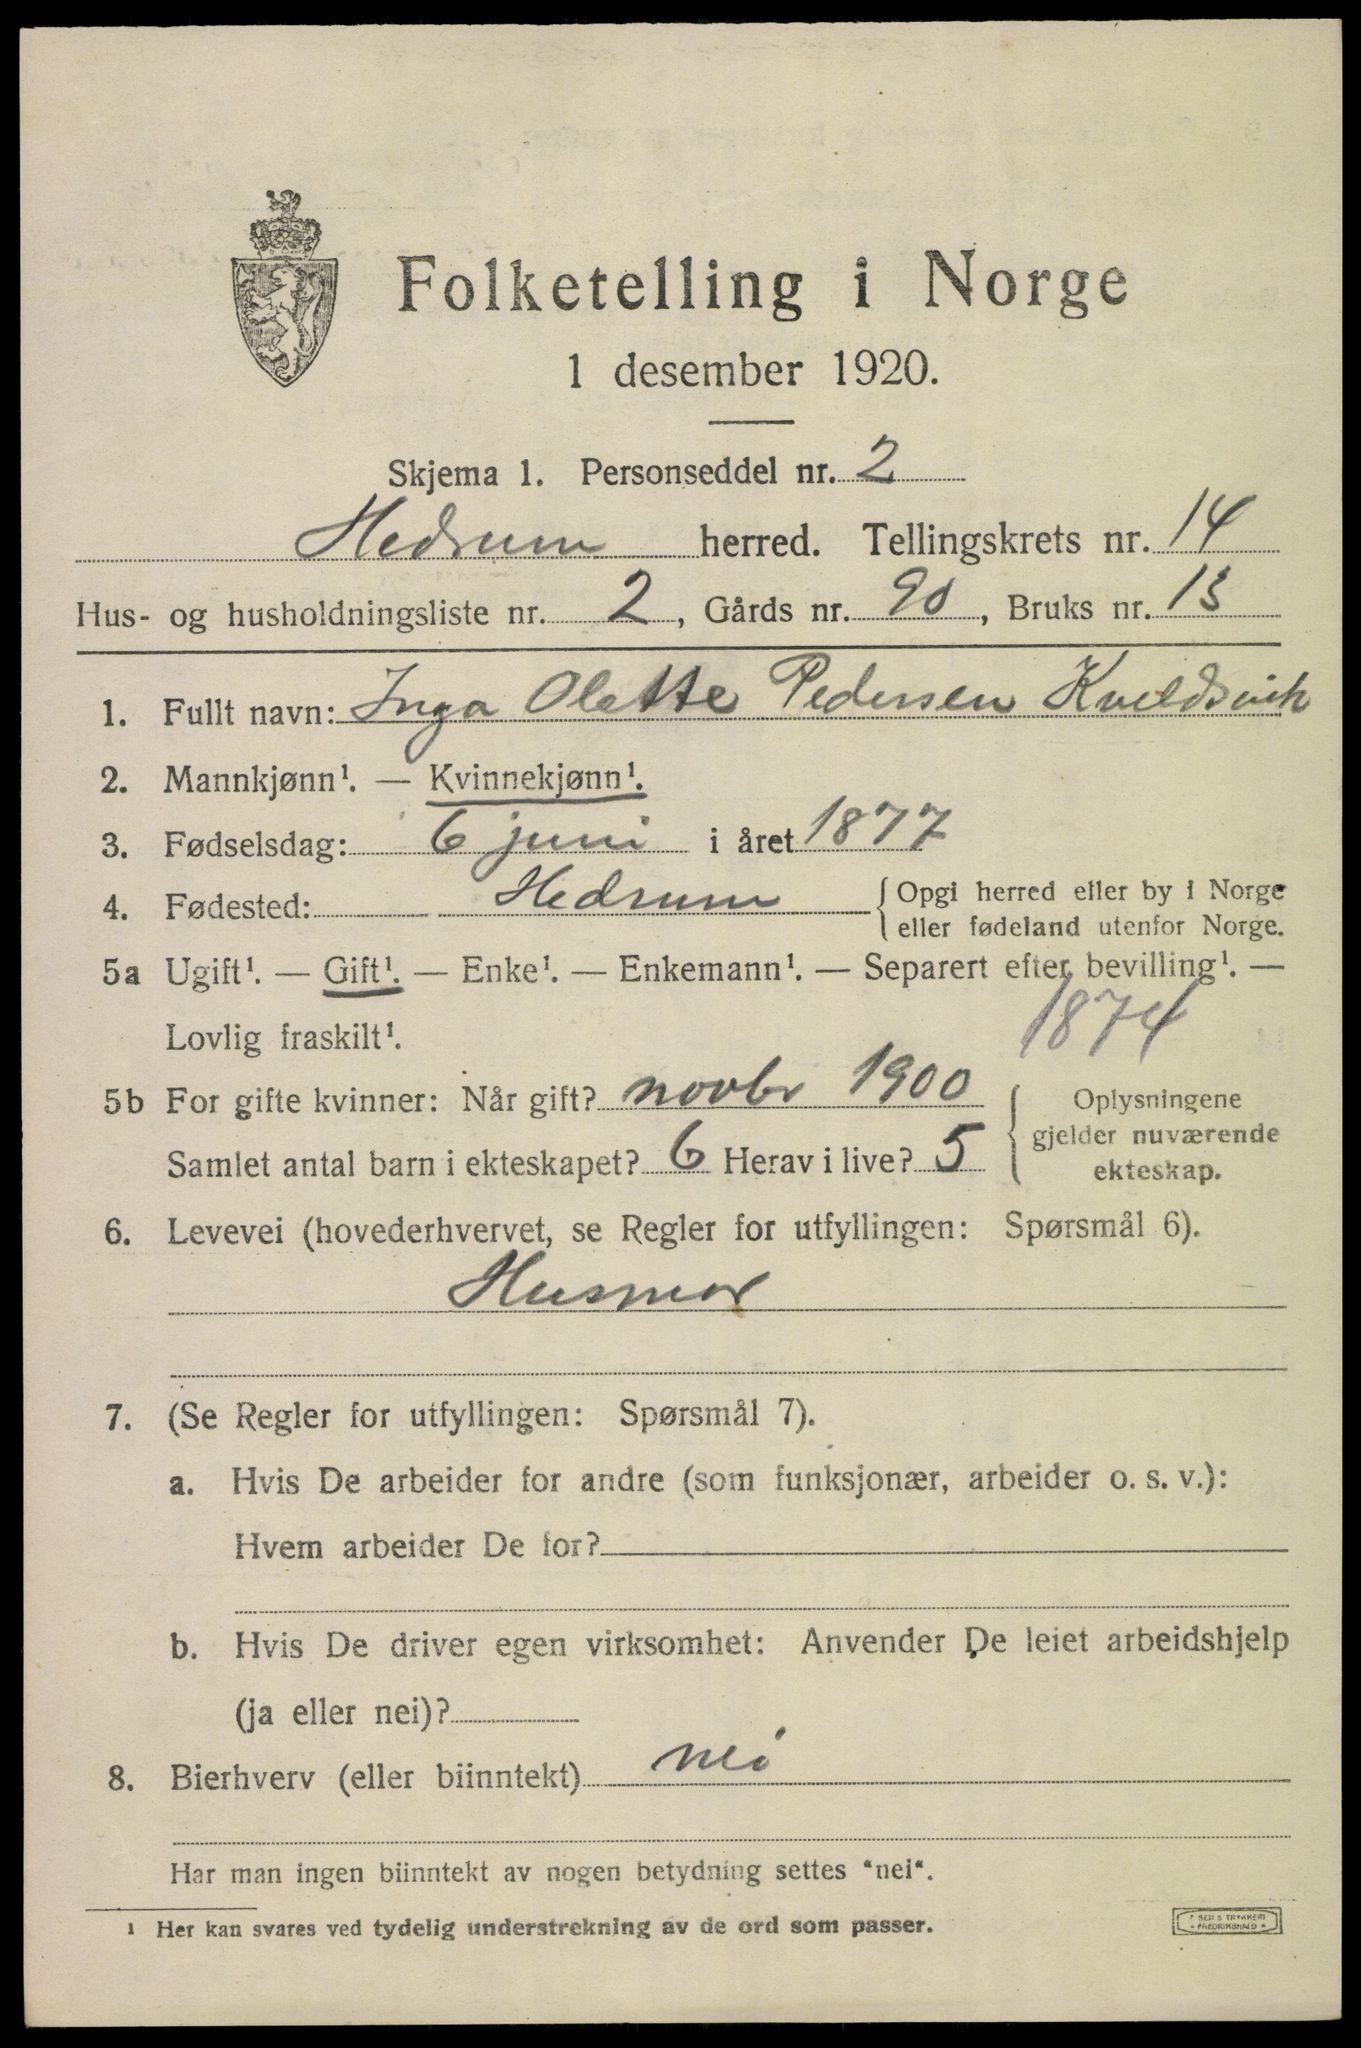 Folketelling i Norge
1 desember 1920.
Skjema 1. Personseddel nr. 2
Hedrum herred. Tellingskrets nr. 14
Hus- og husholdningsliste nr. 2, Gårds nr. 90, Bruks nr. 13
1. Fullt navn: Inga Olette Pedersen Kveldsvik
2. Mannkjønn¹. — Kvinnekjønn¹.
3. Fødselsdag: 6 juni i året 1877
4. Fødested: Hedrum {Opgi herred eller by i Norge
eller fødeland utenfor Norge.
5a Ugift¹. — Gift¹. — Enke¹. — Enkemann¹. — Separert efter bevilling¹. —
Lovlig fraskilt¹. 1874
5b For gifte kvinner: Når gift? novbr 1900 { Oplysningene
gjelder nuværende
Samlet antal barn i ekteskapet? 6 Herav i live? 5
ekteskap.
6. Levevei (hovederhvervet, se Regler for utfyllingen: Spørsmål 6).
Husmor
7. (Se Regler for utfyllingen: Spørsmål 7).
a. Hvis De arbeider for andre (som funksjonær, arbeider o. s. v.):
Hvem arbeider De for?
b. Hvis De driver egen virksomhet: Anvender De leiet arbeidshjelp
(ja eller nei)?
8. Bierhverv (eller biinntekt) nei
Har man ingen biinntekt av nogen betydning settes "nei".
¹ Her kan svares ved tydelig understrekning av de ord som passer.
TRYKKERI
FREDRIKSHALD